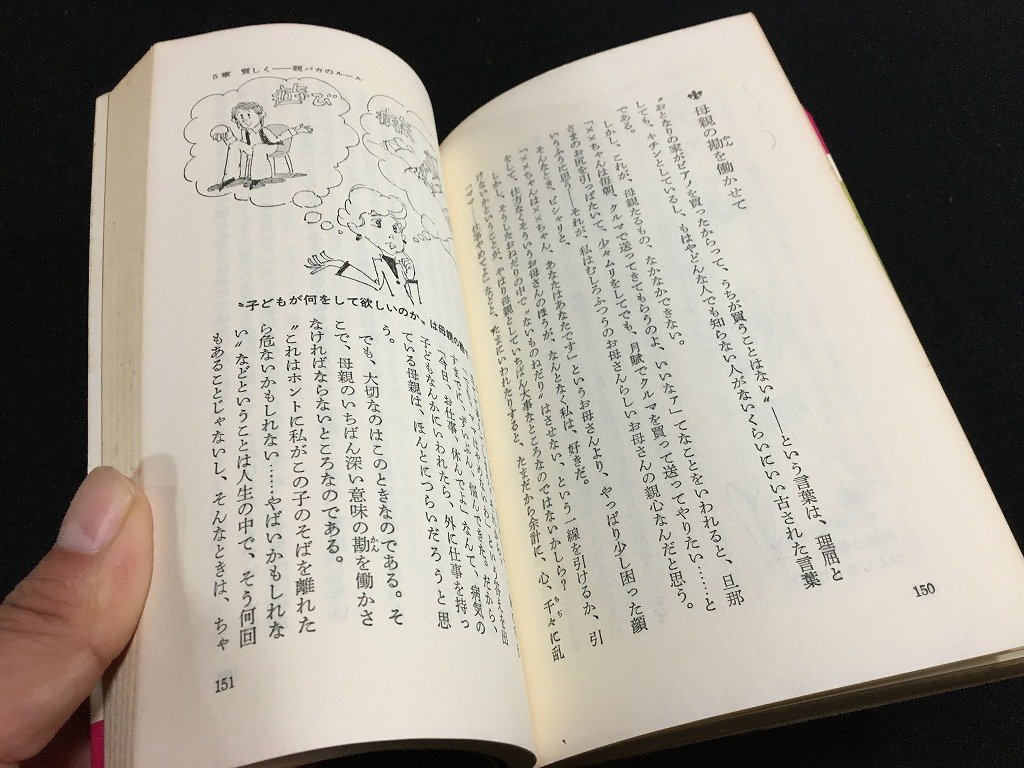 母親の勘を働かせて
かん
〝おとなりの家がピアノを買ったからって、うちが買うことはない〟――という言葉は、理屈と
しても、キチンとしているし、もはやどんな人でも知らない人がないくらいにいい古された言葉
である。
しかし、これが、母親たるもの、なかなかできない。
「××ちゃんは毎朝、クルマで送ってきてもらうのよ、いいなァ」てなことをいわれると、旦那
さまのお尻を引っぱたいて、少々ムリをしてでも、月賦でクルマを買って送ってやりたい……と
いうふうに思う――それが、私はむしろふつうのお母さんらしいお母さんの親心なんだと思う。
そんなとき、ピシャリと、
「××ちゃんは××ちゃん、あなたはあなたです」というお母さんより、やっぱり少し困った顔
をして、仕方なくそういうお母さんのほうが、なんとなく私は、好きだ。
しかし、そうしたおねだりの中で〝ないものねだり〟はさせない、という一線を引けるか、引
けないかということが、やはり母親としていちばん大事なところなのではないかしら?
「ママ――仕事やめてよ」などと、たまにいわれたりすると、たまだから余計に、心、千々に乱
ちぢ
150
5章 賢しく――親バカのルール
遊び
〝子どもが何をして欲しいのか〟は母親の
すまでに、ずいぶん、悩んできた。だから、
「今日、お仕事、休んでよ」なんて、病気の
子どもなんかにいわれたら、外に仕事を持っ
ている母親は、ほんとにつらいだろうと思
う。
でも、大切なのはこのときなのである。そ
こで、母親のいちばん深い意味の勘を働かさ
かん
なければならないところなのである。
〝これはホントに私がこの子のそばを離れた
ら危ないかもしれない……やばいかもしれな
い〟などということは人生の中で、そう何回
もあることじゃないし、そんなときは、ちゃ
151